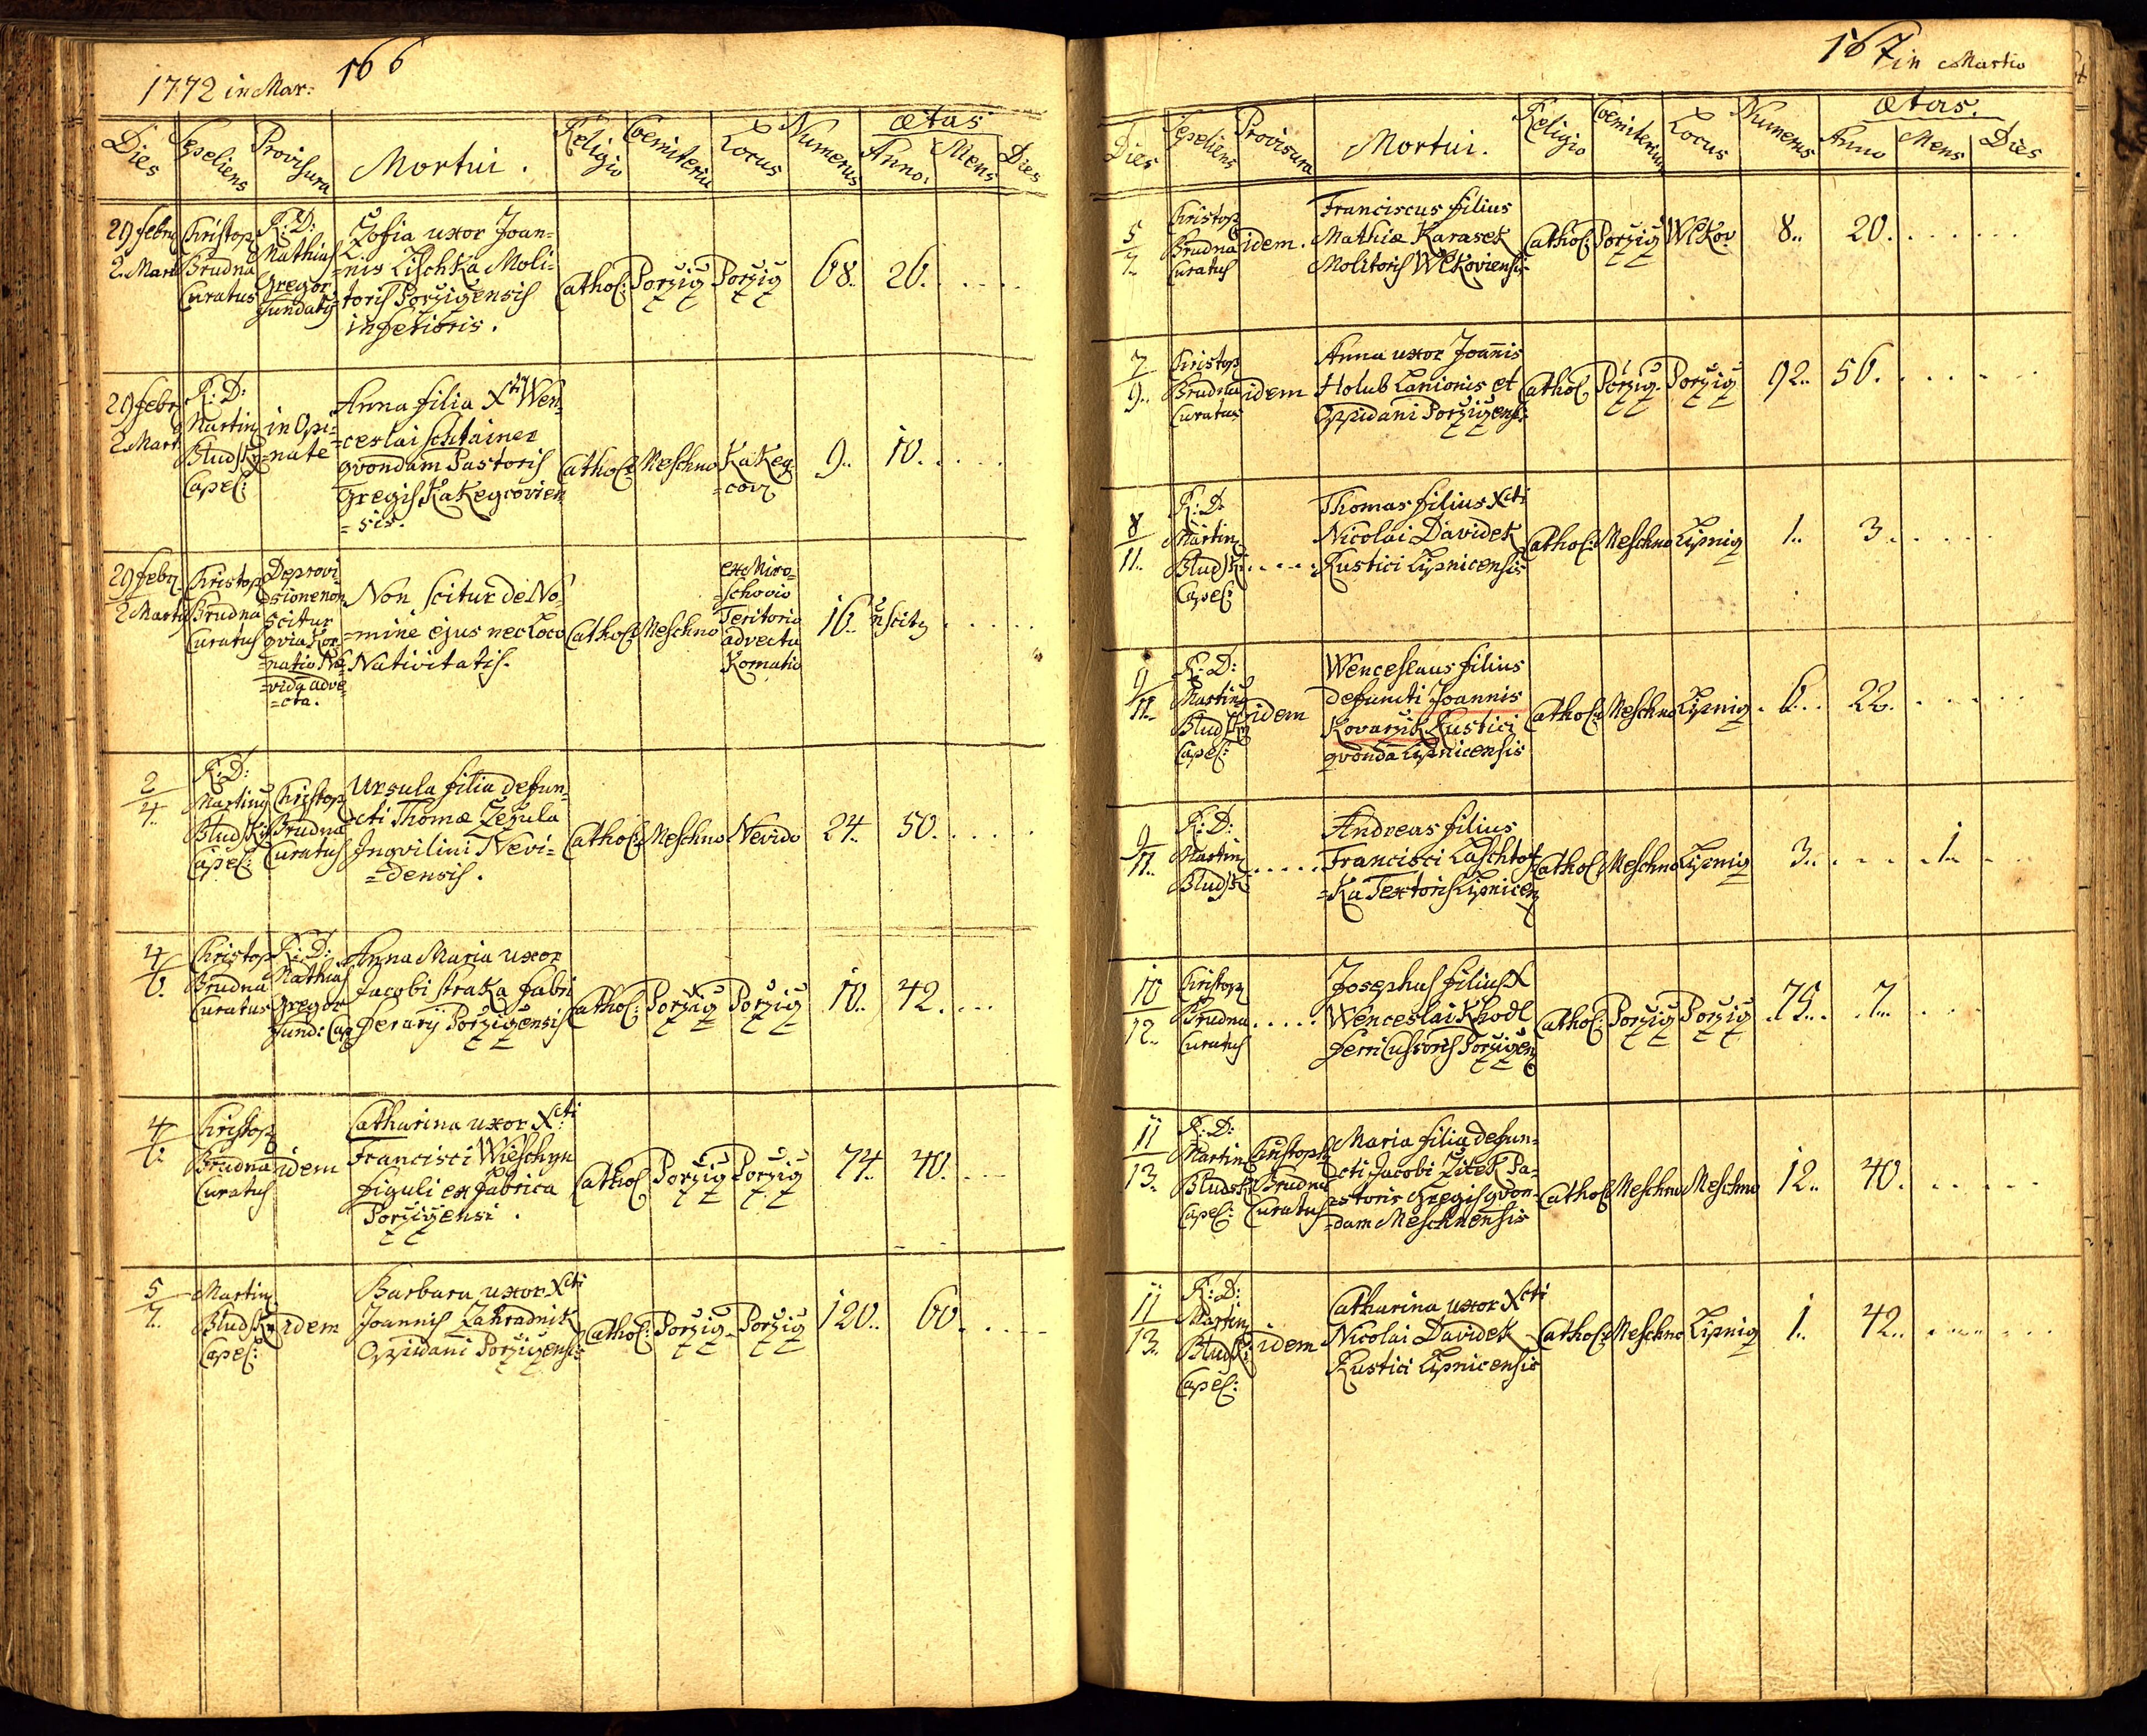 1772 in Mar:
166
Dies Sepeliens Provisura Mortui. Religio Coemiteriu Locus Numerus ætas
Anno. Mens Dies
29 febru
2. Marti
Christop
Brudna
Curatus
R: D:
Mathias
Gregor
fundatq
Zofia uxor Joan-
=nis Lischka Moli-
toris Porzigensis
inferioris.
Cathol: Porzig Porzig 68.. 26.
29 febr
2 Mart
R: D:
Martinq
Bludsky
Capel:
in Opi-
=nate
Anna filia Xti Wen
=ceslai Schtainer
qvondam Pastoris
Gregis Kakegcovien
=sis.
Cathol: Meschno Kakeg
=cov
9.. 10.
29 febr
2 Marti
Christop
Brudna
Curatus
De provi-
sione non
scitur
qvia Kor
=natio Ne
=vida adve
=cta.
Non scitur de No-
=mine ejus nec Loco
Nativitatis.
Cathol: Meschno
ex Miro-
schovio
Teritorio
advecta
Kornatio
16..
2
4..
R: D:
Martinq
Bludsky
Capel:
Christop
Brudna
Curatus
Ursula filia defun-
cti Thomæ Zezula
Inqvilini Nevi-
=densis.
Cathol: Meschno Nevido 24.. 50.
4
6.
Christop
Brudna
Curatus
R: D:
Mathias
Gregor
fund: Cap
Anna Maria uxor
Jacobi Straka fabri
ferarij Porzigensis
Cathol: Porzig Porzig 10.. 42.
4
6.
Christop
Brudna
Curatus
idem
Catharina uxor Xcti:
Francisci Wieschyn
figuli ex fabrica
Porzigensi.
Cathol Porzig Porzig 74.. 40.
5
7.
Martinq
Bludsky
Capel:
idem
Barbara uxor Xcti
Joannis Zahradnik
Oppidani Porzigensis
Cathol: Porzig Porzig 120.. 60.
167 in Martio
Dies Sepeliens Provisura Mortui. Religio Coemiterium Locus Numerus ætas.
Anno Mens Dies
5
7.
Christop
Brudna
Curatus
idem.
Franciscus filius
Mathiæ Karasek
Molitoris Wlkoviensis
Cathol: Porzig Wlkov 8.. 20.
7
9..
Christop
Brudna
Curatus
idem
Anna uxor Joannis
Holub Lanionis et
Oppidani Porzigens:
Cathol Porzig. Porzig 92.. 56.
8
11..
R: D:
Martinq
Bludsk
Capel:
Thomas filius Xcti
Nicolai Davidek
Rustici Lipnicensis
Cathol: Meschno Lipnig 1.. 3.
9
11..
R: D:
Martinq
Bludsky
Capel:
idem
Wenceslaus filius
defuncti Joannis
Kovarzik Rustici
qvondā Lipnicensis
Cathol: Meschno Lipnig 6.. 22.
9
11..
R: D:
Martinq
Bludsk
Andreas filius
Francisci Laschtof
=Ka Textoris Lipnicen
Cathol Meschno Lipnig 3.. 1..
10
12..
Christop
Brudna
Curatus
Josephus filius X
Wenceslai Khodl
ferri Cussoris Porzigen
Cathol: Porzig Porzig 75.. 7..
11
13.
R: D:
Martinq
Bludsk
Capel:
Christoph
Brudna
Curatus
Maria filia defun-
cti Jacobi Zitek Pa-
=storis Gregis qvon-
=dam Meschnensis
Cathol: Meschno Meschno 12.. 40.
11
13..
R: D:
Martinq
Bludsk:
Capel:
idem
Catharina uxor Xcti
Nicolai Davidek
Rustici Lipnicensis
Cathol: Meschno Lipnig 1.. 42..